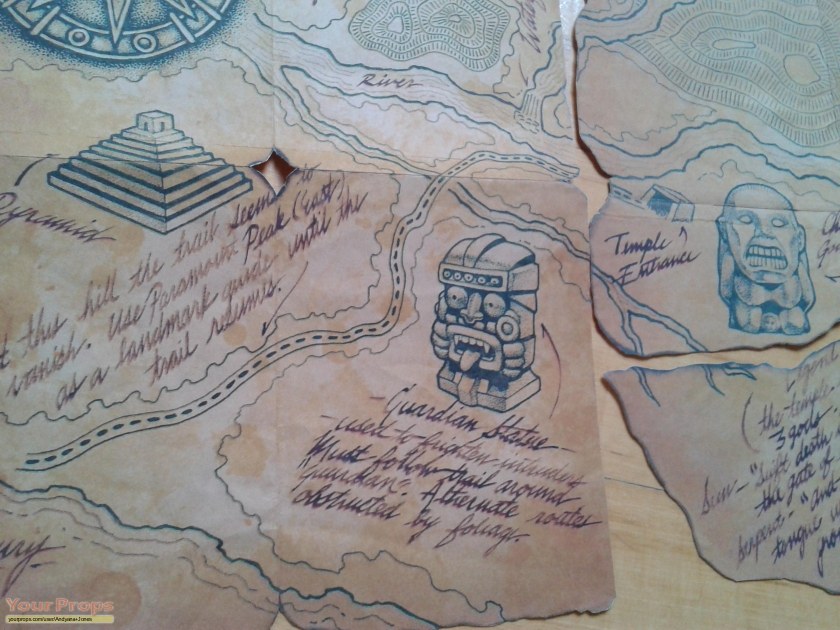 River
Pyramid
this hill the trail seems to
vanish. Use Paramount Peak (east)
as a landmark guide until the
trail resumes.
Temple
Entrance
- Guardian Statue -
- used to frighten intruders
Must follow trail around
guardian". Alternate routes
obstructed by foliage.
(the temple
3 gods
Sun- "Swift death
the gate of
Serpent- "and
tongue
Your Props
yourprops.com/user/Andyana-Jones